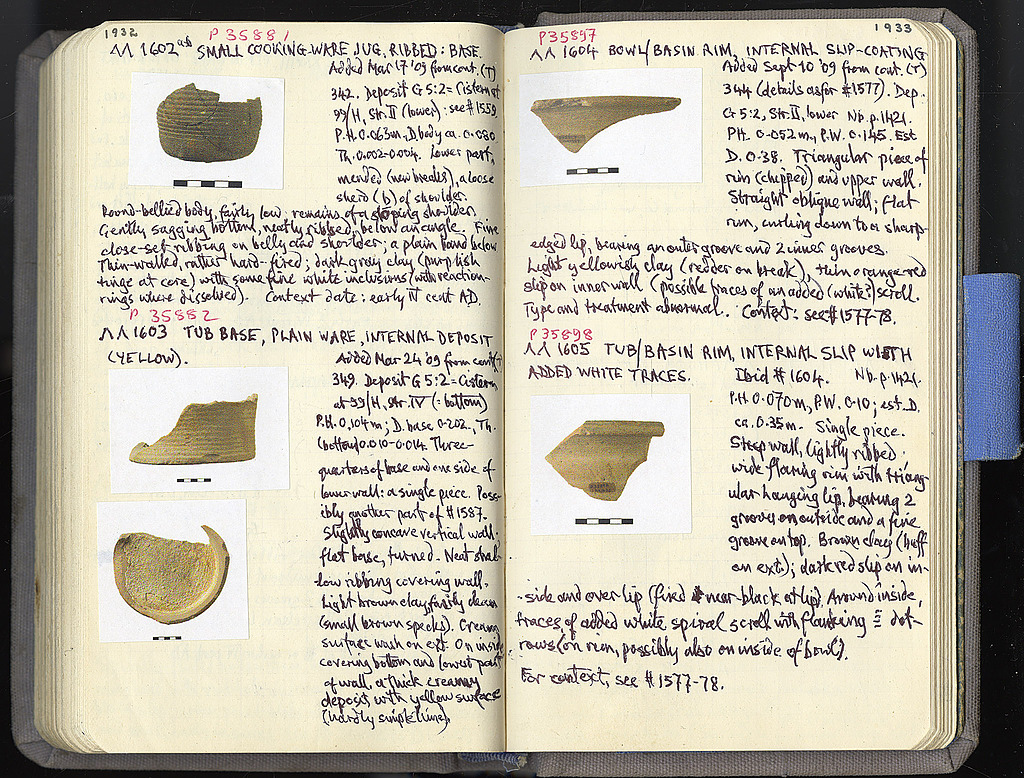 1932
P 35881
ΛΛ 1602 ab SMALL COOKING-WARE JUG, RIBBED: BASE.
Added Mar 17 '09 from cont. (T)
342. Deposit G 5:2 = Cistern at
99/H, Str. II (lower): see #1559.
P.H. 0.063m, D. body ca. 0.080
Th. 0.002-0.004. Lower part,
mended (new breaks), a loose
sherd (b) of shoulder.
Round-bellied body, fairly low: remains of a sloping shoulder.
Gently sagging bottom, neatly ribbed, below an angle. Fine
close-set ribbing on belly and shoulder; a plain band below
Thin-walled, rather hard-fired; dark gray clay (purplish
tinge at core) with some fine white inclusions (with reaction-
rings where dissolved). Context date: early IV cent AD.
P 35882
ΛΛ 1603 TUB BASE, PLAIN WARE, INTERNAL DEPOSIT
(YELLOW).
Added Mar 24 '09 from cont (T)
349. Deposit G 5:2 = Cistern
at 99/H, Str. IV (: bottom)
P.H. 0.104m; D. base 0.202, Th.
(bottom) 0.010-0.014. Three-
quarters of base and one side of
lower wall: a single piece. Poss-
ibly another part of #1587.
Slightly concave vertical wall.
flat base, turned. Neat shal-
low ribbing covering wall.
Light brown clay, fairly clean
(small brown specks). Creamy
surface wash on ext. On inside
covering bottom and lowest part
of wall, a thick creamy
deposit, with yellow surface
(hardly simple lime).
1933
P35897
ΛΛ 1604 BOWL/BASIN RIM, INTERNAL SLIP-COATING
Added Sept 10 '09 from cont. (T)
344 (details as for #1577). Dep.
G 5:2, Str. II, lower Nb. p. 1421.
P.H. 0.052m, P.W. 0.145. Est
D. 0.38. Triangular piece of
rim (chipped) and upper wall.
Straight oblique wall; flat
rim, curling down to a sharp-
edged lip, bearing an outer groove and 2 inner grooves.
Light yellowish clay (redder on break), thin orange-red
slip on inner wall (possible traces of an added (white?) scroll.
Type and treatment abnormal. Context: see #1577-78.
P35898
ΛΛ 1605 TUB/BASIN RIM, INTERNAL SLIP WITH
ADDED WHITE TRACES.
Ibid #1604. Nb. p. 1421.
P.H. 0.070m, P.W. 0.10; est. D.
ca. 0.35m. Single piece.
Steep wall, lightly ribbed.
wide flaring rim with triang-
ular hanging lip, bearing 2
grooves on outside and a fine
groove on top. Brown clay (buff
on ext.); dark red slip on in-
-side and over lip (fired near-black at lip). Around inside,
traces of added white spiral scroll with flanking dot-
rows (on rim, possibly also on inside of bowl).
For context, see #1577-78.